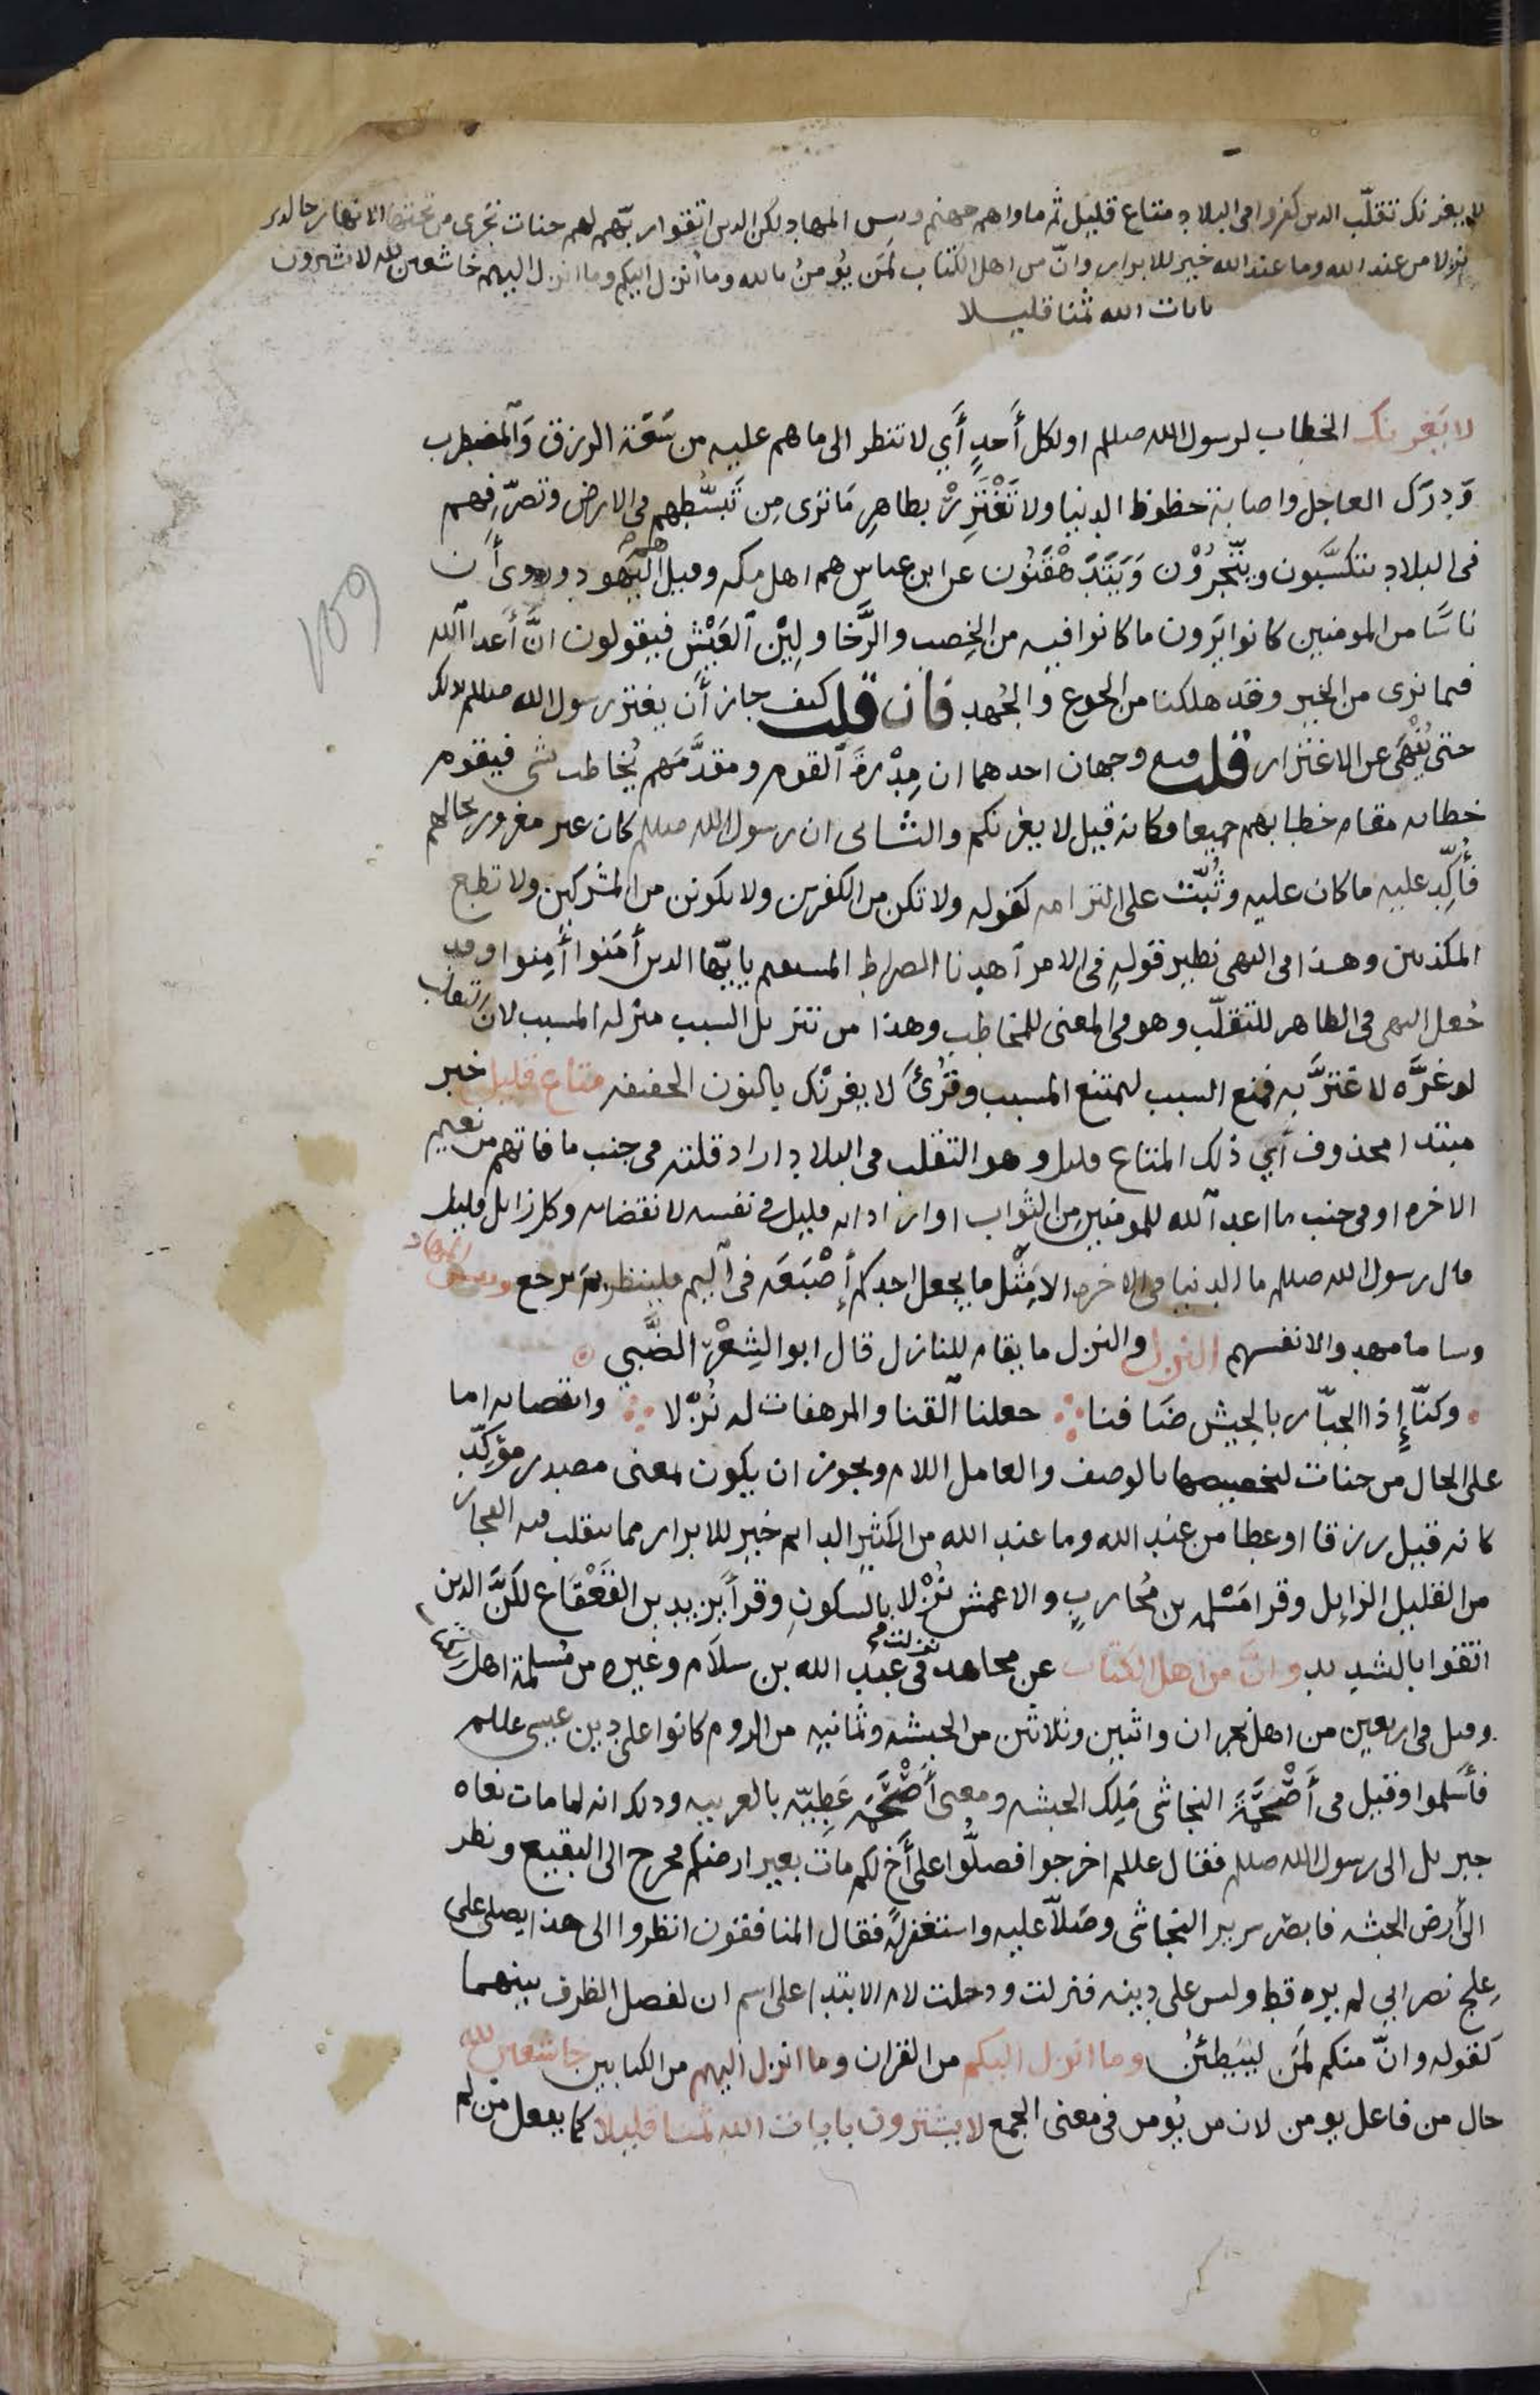 لا يغرنك تقلّب الذين كفروا في البلاد متاع قليل ثم ماواهم جهنم وبيس المهاد لكن الذين اتقوا ربّهم لهم جنات تجرى من تحتها الانهار خالدين
نزلا من عند الله وما عند الله خير للابرار وانّ من اهل الكتاب لمَن يُومنُ بالله وما أنزل اليكم وما انزل اليهم خاشعين لله لا يشترون
بايات الله ثمنا قليلا
لا يَغُرنك الخطاب لرسول الله صللم او لكل أَحدٍ أَي لا تنظر الى ما هم عليه من سَعَة الرزق وَالمضطرب
وَدرَك العاجل واصابة حظوظ الدنيا ولا تَغْتَرِرْ بظاهرِ مَا ترى مِن تَبسُّطِهم في الارض وتصرّفهم
في البلاد يتكسَّبون ويتّجرُوْن وَيَتَدَهْقَنُون عن ابن عباس هم اهل مكه وقيل هم اليَهُود وروى أَن
ناسًا من المومنين كانوا يَرَون ما كانوا فيه من الخِصب والرَّخا ولِيْن العَيْش فيقولون انَّ أَعدا الله
فيما نرى من الخير وقد هلكنا من الجوع والجُهد فان قلت كيف جاز أَن يغتر رسول الله صللم بذلك
حتى يُنْهَى عن الاغترار قلت فيه وجهان احدهما ان مِدْرَهَ القوم ومقدَّمَهم يُخاطب بشى فيقوم
خطابه مقام خطابهم جميعا فكانه قيل لا يغرنكم والثانى ان رسول الله صللم كان غير مغرور بحالهم
فأُكِّد عليه ما كان عليه وثُبّتَ على التزامه كقوله ولا تكن من الكفرين ولا تكونن من المشركين ولا تطع
المكذبين وهذا في النهى نظير قولهِ في الامر آهدنا الصراط المستقيم يا ايّها الذين أمَنوا أَمِنوا وقد
جُعل النهى في الظاهر للتقلّب وهو في المعنى للمخاطب وهذا من تنزيل السبب منزلة المسبب لان التقلب
لو غرَّه لاغترَّ به فمنع السبب ليمتنع المسبب وقُرئَ لا يغرنْك بالنون الخفيفه متاع قليل خبر
مبتدا محذوف أَي ذلك المتاع قليل وهو التقلب في البلاد اراد قلته في جنب ما فاتهم من نعيم
الاخره او في جنب ما اعد آلله للمومنين من الثواب او اراد انه قليل في نفسه لانقضايه وكل زايل قليل
قال رسول الله صللم ما الدنيا في الاخره الا مِثْل ما يجعل احدكم أِصْبَعَه في اليم فلينظر بمَ يرجع وبيس المهاد
وسا ما مهدوا لانفسهم النزل والنزل ما يقام للنازل قال ابو الشِعْر الضَّبي
وكنّا إِذا الجبّار بالجيش ضَافنا جعلنا ألقنا والمرهفات له نُزّلا وانتصابه اما
على الحال من جنات لتخصيصها بالوصف والعامل اللام ويجوز ان يكون لمعنى مصدر مؤكِّد
كانه قيل رزقا او عطا من عند الله وما عند الله من الكثير الدايم خير للابرار مما يتقلب فيه الفجار
من القليل الزايل وقرا مَسْلمه بن مُحاربٍ والاعمش نُزْلا بالسكونِ وقرأ يزيد بن القَعْقَاع لكنَّ الذين
اتقوا بالتشديد وانَّ من اهل الكتاب عن مجاهد نزلت في عبد الله بن سلَام وغيره من مُسلمة اهل
وقيل في اربعين من اهل نجران واثنين وثلاثين من الحبشه وثمانيه من الروم كانوا على دين عيسى عللم
فأسَلموا وقيل في أَصْحَمَةَ النجاشى مَلِك الحبشه ومعنى أَصْحَمَه عَطِيّه بالعربيه وذلك انه لما مات نعاه
جبريل الى رسول الله صللم فقال عللم اخرجوا فصلُّوا على أَخ لكم ماتَ بغير ارضكم فخرج الى البقيع ونظر
الى أرض الحبشه فابصر سرير النجاشى وصَلاّ عليه واستغفر لهَ فقال المنافقون انظروا الى هذا يصلى على
عِلج نصراني لم يره قط وليس على دينه فنزلت ودخلت لام الابتدا على اسم ان لفصل الظرف بينهما
كقوله وانّ منكم لَمَن ليَبطئنُ وما انزل اليكم من القران وما انزل اليهم من الكتابين خاشعين لله
حال من فاعل يومن لان من يُومن في معنى الجمع لا يشترون بايات الله ثمنا قليلا كما يفعل من لم